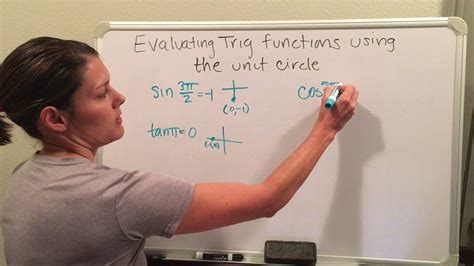 Evaluating Trig functions using
the unit circle
sin 3π/2 = -1
(0,-1)
cos
tanπ=0
(-1,0)